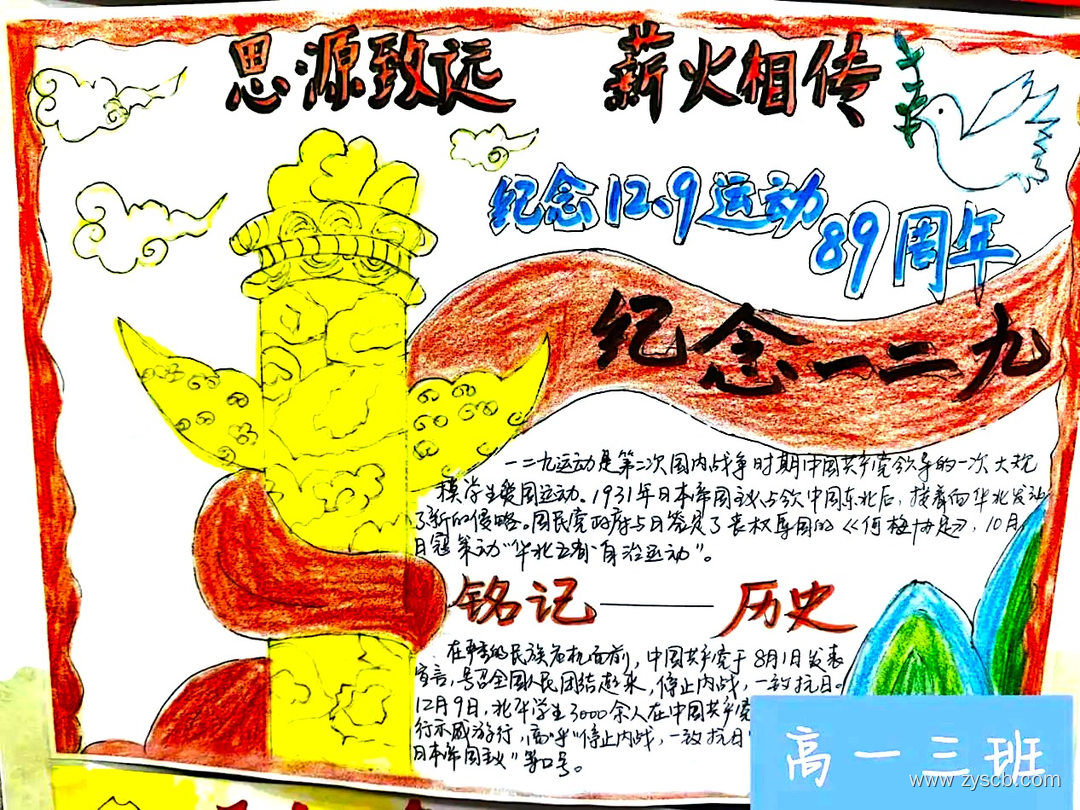 思源致远 薪火相传
纪念12.9运动
89周年
纪念一二九
一二九运动是第二次国内战争时期中国共产党领导的一次大规
模学生爱国运动。1931年日本帝国主义占领中国东北后,接着向华北发动
了新的侵略。国民党政府与日签定了丧权辱国的《何梅协定》,10月,
日寇策动“华北五省自治运动”。
铭记——历史
在严重的民族危机面前,中国共产党于8月1日发表
宣言,号召全国人民团结起来,停止内战,一致抗日。
12月9日,北平学生3000余人在中国共产党
行示威游行,高呼“停止内战,一致抗日”
日本帝国主义”等口号。
高一三班
www.zyscb.com